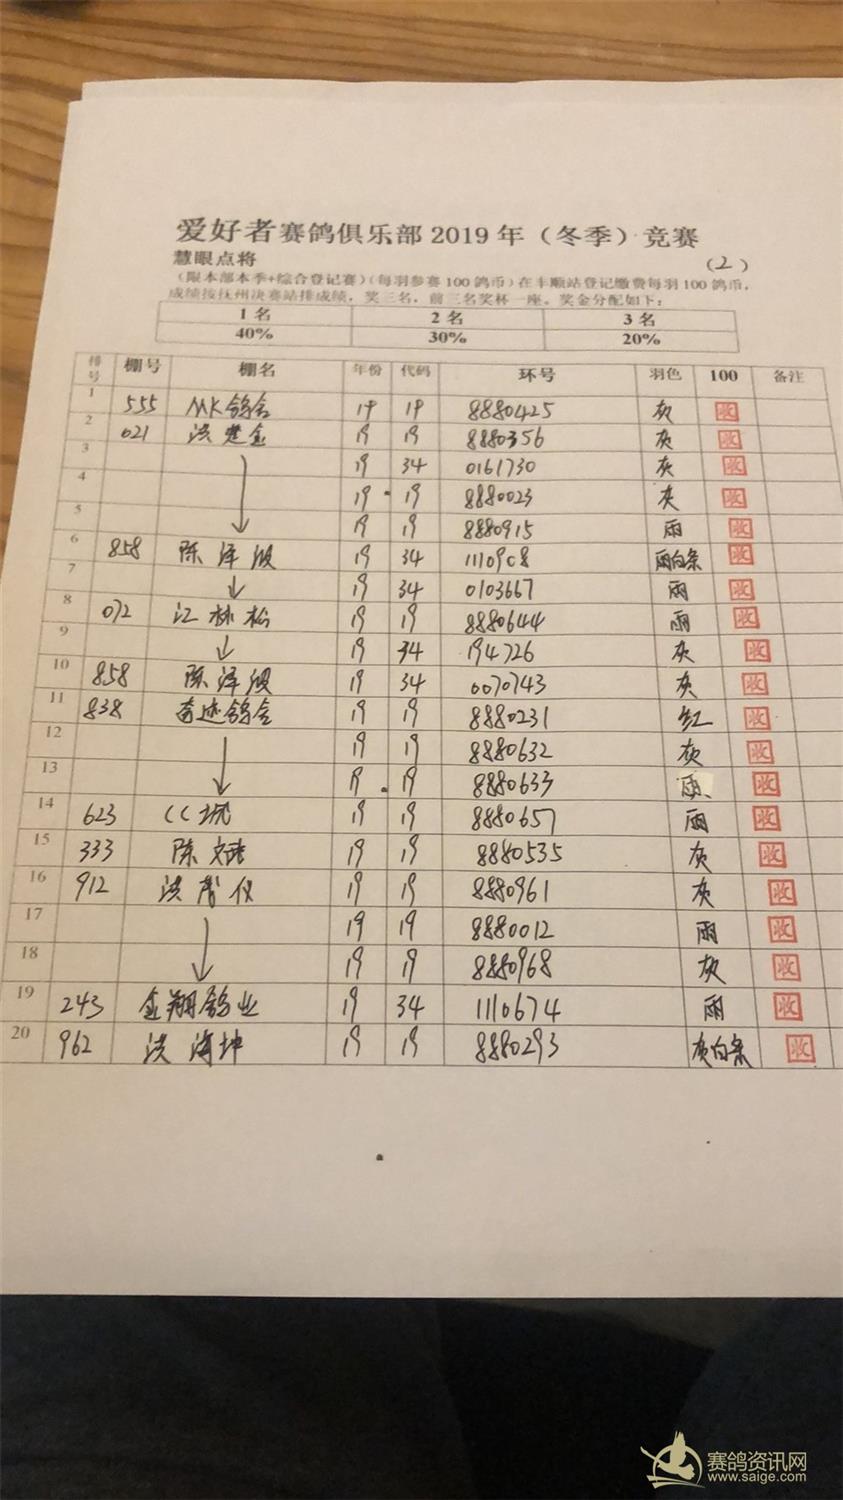 爱好者赛鸽俱乐部 2019 年（冬季）竞赛
慧眼点将 (2)
（限本部本季+综合登记赛）（每羽参赛 100 鸽币）在丰顺站登记缴费每羽 100 鸽币，
成绩按抚州决赛站排成绩，奖三名，前三名奖杯一座。奖金分配如下：
1 名 2 名 3 名
40% 30% 20%
排号 棚号 棚名 年份 代码 环号 羽色 100 备注
1 555 MK鸽舍 19 19 8880425 灰 收
2 021 洪楚金 19 19 8880356 灰 收
3 19 34 0161730 灰 收
4 19 19 8880023 灰 收
5 19 19 8880915 雨 收
6 858 陈泽 19 34 1110908 雨白条 收
7 19 34 0103667 雨 收
8 072 江林松 19 19 8880644 雨 收
9 19 34 194726 灰 收
10 858 陈泽 19 34 0070743 灰 收
11 838 奇迹鸽舍 19 19 8880231 红 收
12 19 19 8880632 灰 收
13 19 19 8880633 雨 收
14 623 CC 19 19 8880657 雨 收
15 333 陈文 19 19 8880535 灰 收
16 912 洪 仪 19 19 8880961 灰 收
17 19 19 8880012 雨 收
18 19 19 8880968 灰 收
19 243 金翔鸽业 19 34 1110674 雨 收
20 962 洪海坤 19 19 8880293 灰白条 收
赛鸽资讯网
www.saige.com